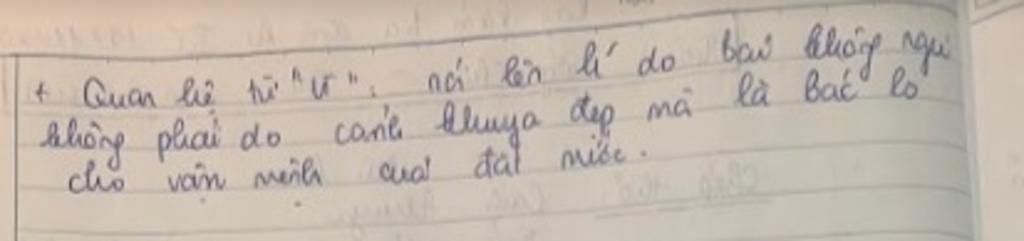 + Quan hệ từ "vì": nói lên lí do bác không ngủ
không phải do cảnh khuya đẹp mà là Bác lo
cho vận mệnh của đất nước.